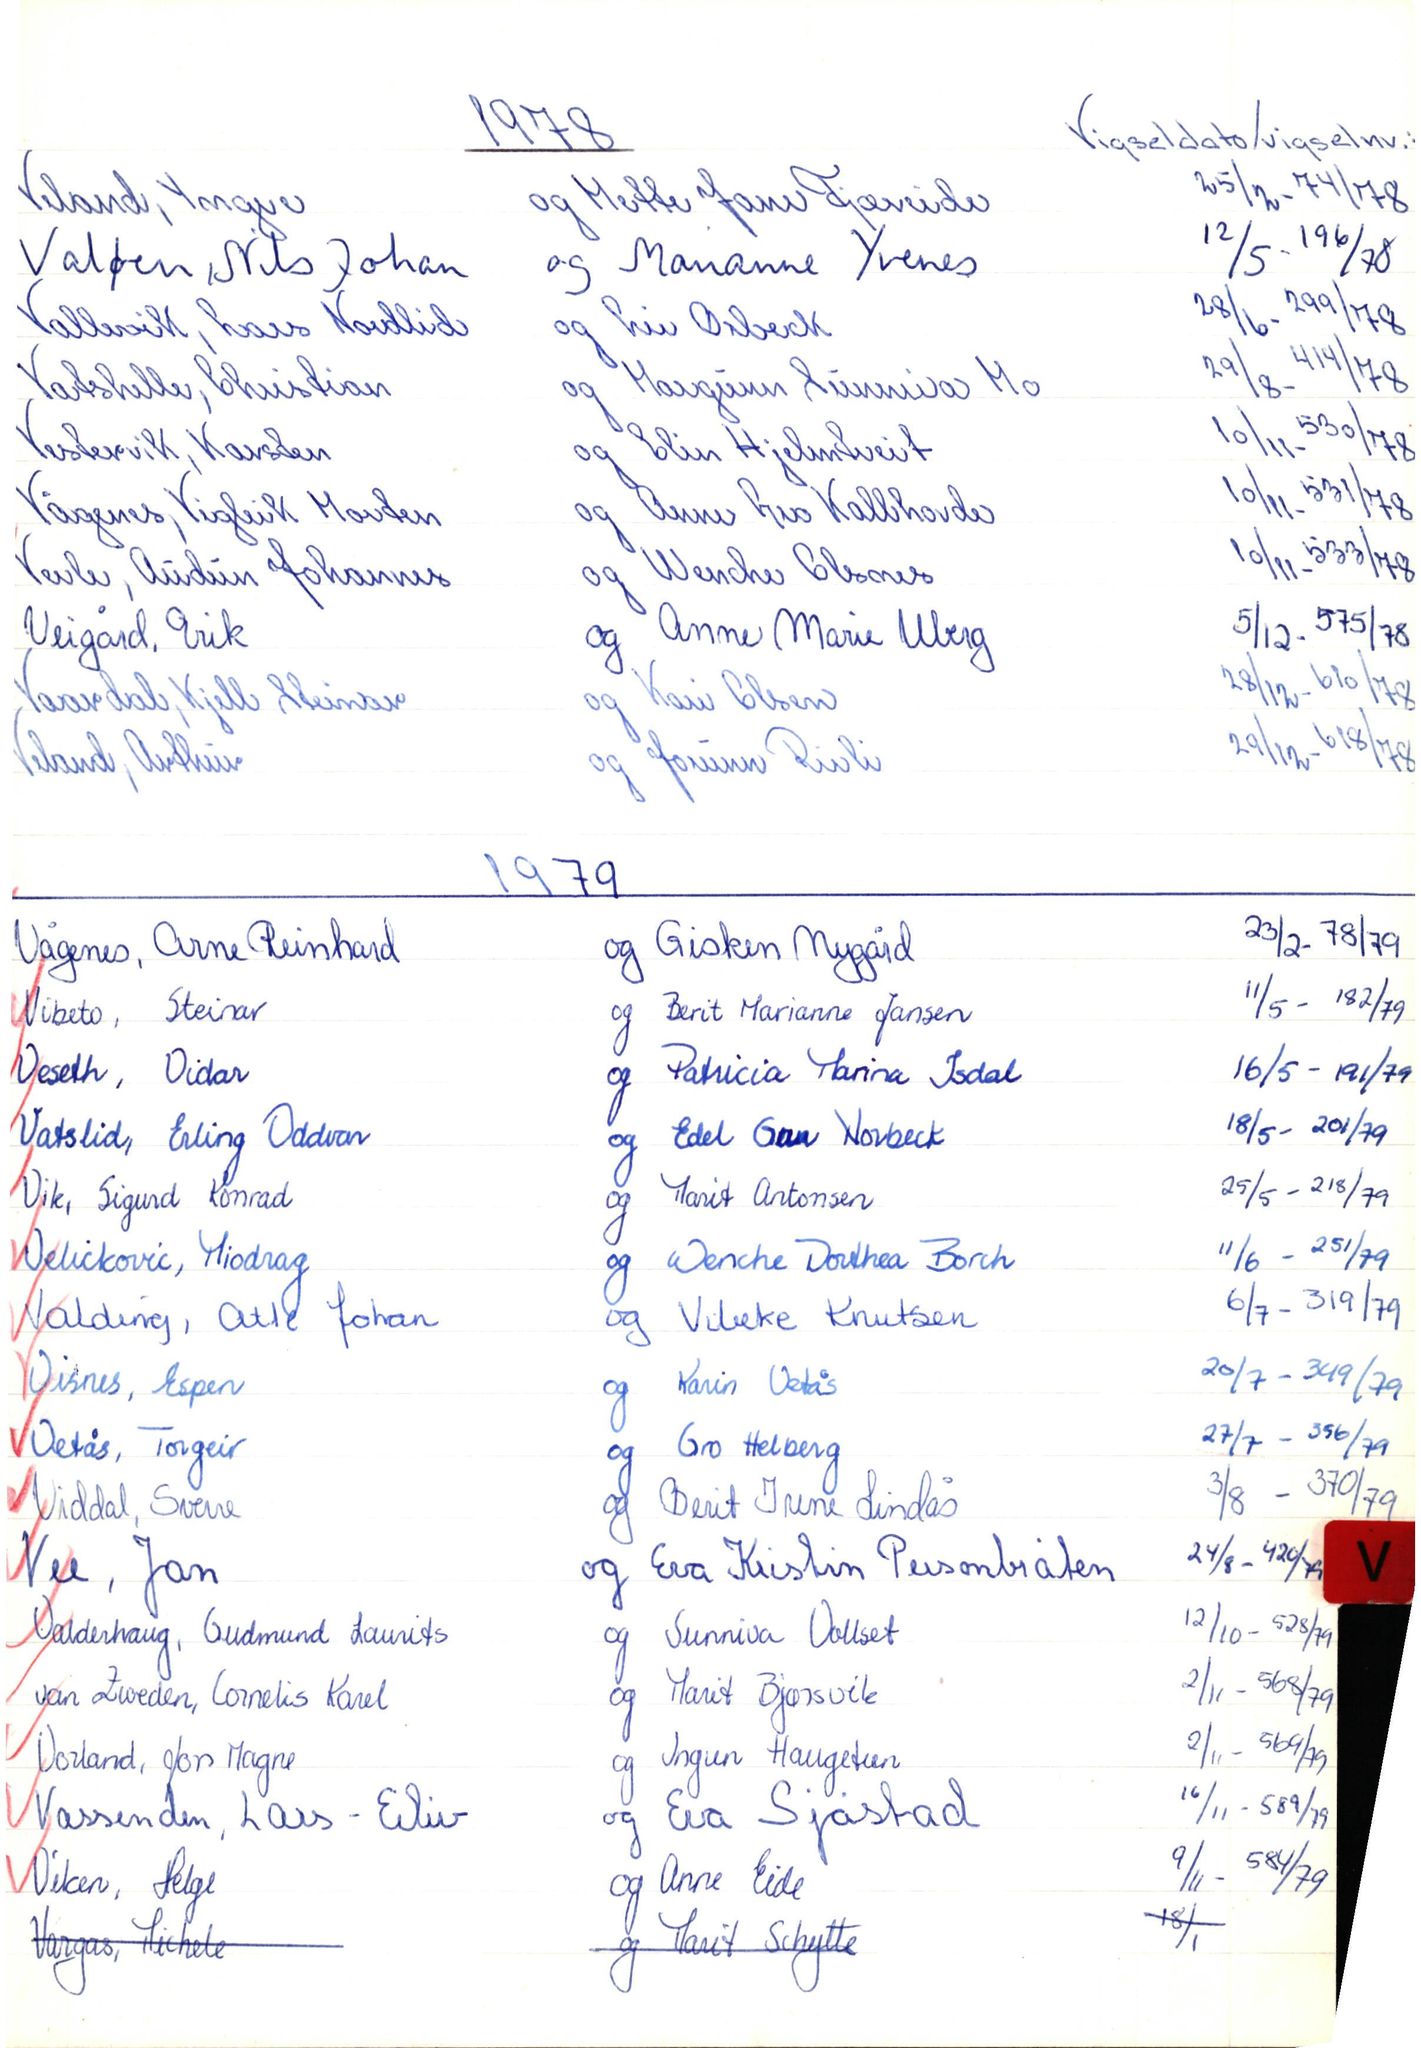 1978
Vigseldato/vigselnr.:
Veland, Yngve og Mette Jane Fjæreide 25/2-74/78
Valøen, Nils Johan og Marianne Yvenes 12/5-196/78
Vallervik, Lars Nordlid og Liv Osbeck 28/6-299/78
Vatshelle, Christian og Margunn Sunniva Mo 29/8-414/78
Vestervik, Karsten og Elin Hjelmtveit 10/11-530/78
Vågenes, Vigleik Morten og Anne Lise Kallhovde 10/11-531/78
Verle, Audun Johannes og Wenche Olsnes 10/11-533/78
Veigård, Erik og Anne Marie Uberg 5/12-575/78
Vaardal, Kjell Steinar og Kari Olsen 28/12-610/78
Veland, Arthur og Jorunn Risli 29/12-618/78
1979
Vågenes, Arne Reinhard og Gisken Nygård 23/2-78/79
Vibeto, Steinar og Berit Marianne Jansen 11/5-182/79
Veseth, Vidar og Patricia Marina Isdal 16/5-191/79
Vatslid, Erling Oddvar og Edel Gran Norbeck 18/5-201/79
Vik, Sigurd Konrad og Marit Antonsen 25/5-218/79
Velickovic, Miodrag og Wenche Dorthea Borch 11/6-251/79
Valding, Atle Johan og Vibeke Knutsen 6/7-319/79
Visnes, Espen og Karin Vetås 20/7-349/79
Vetås, Torgeir og Gro Helberg 27/7-356/79
Viddal, Sverre og Berit Irene Lindås 3/8-370/79
Vee, Jan og Eva Kristin Personbråten 24/8-420/79
V
Valderhaug, Gudmund Laurits og Sunniva Vollset 12/10-528/79
van Zweden, Cornelis Karel og Marit Bjørsvik 2/11-568/79
Vorland, Jon Magne og Ingun Haugetun 2/11-569/79
Vassenden, Lars-Eiliv og Eva Sjåstad 16/11-589/79
Viken, Helge og Anne Eide 9/11-584/79
Vargas, Michele og Marit Schytte 18/1